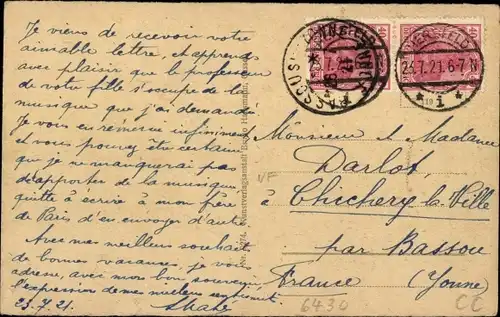 Je viens de recevoir votre
aimable lettre, et apprends
avec plaisir que le professeur
de votre fille s'occupe de la
musique que j'ai demandé
Je vous en remercie infiniment
et vous pouvez être certaine
que je ne manquerai pas
d'apporter de la musique,
quitte à écrire à mon frère
de Paris d'en envoyer d'autre
Avec mes meilleurs souhaits
de bonnes vacances, je vous
adresse, avec mon bon souvenir,
l'expression de mes meilleurs sentiments
23.7.21.
Kunstverlagsanstalt Bruno
VF
24.7.21.6-7N
* i *
Monsieur et Madame
Darlot,
à Chichery la Ville
par Bassou
France (Yonne)
6430
CC